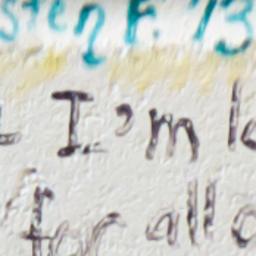 sten F. '13
I'm
for all